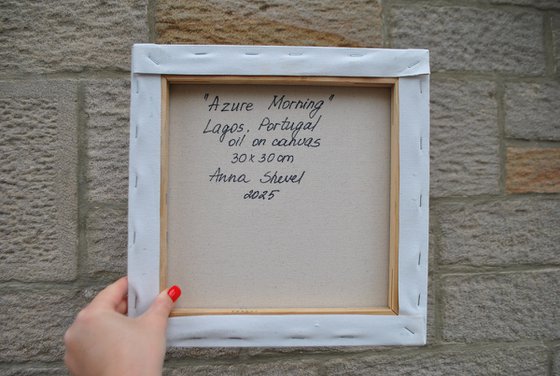 "Azure Morning"
Lagos, Portugal
oil on canvas
30x30 cm
Anna Shevel
2025